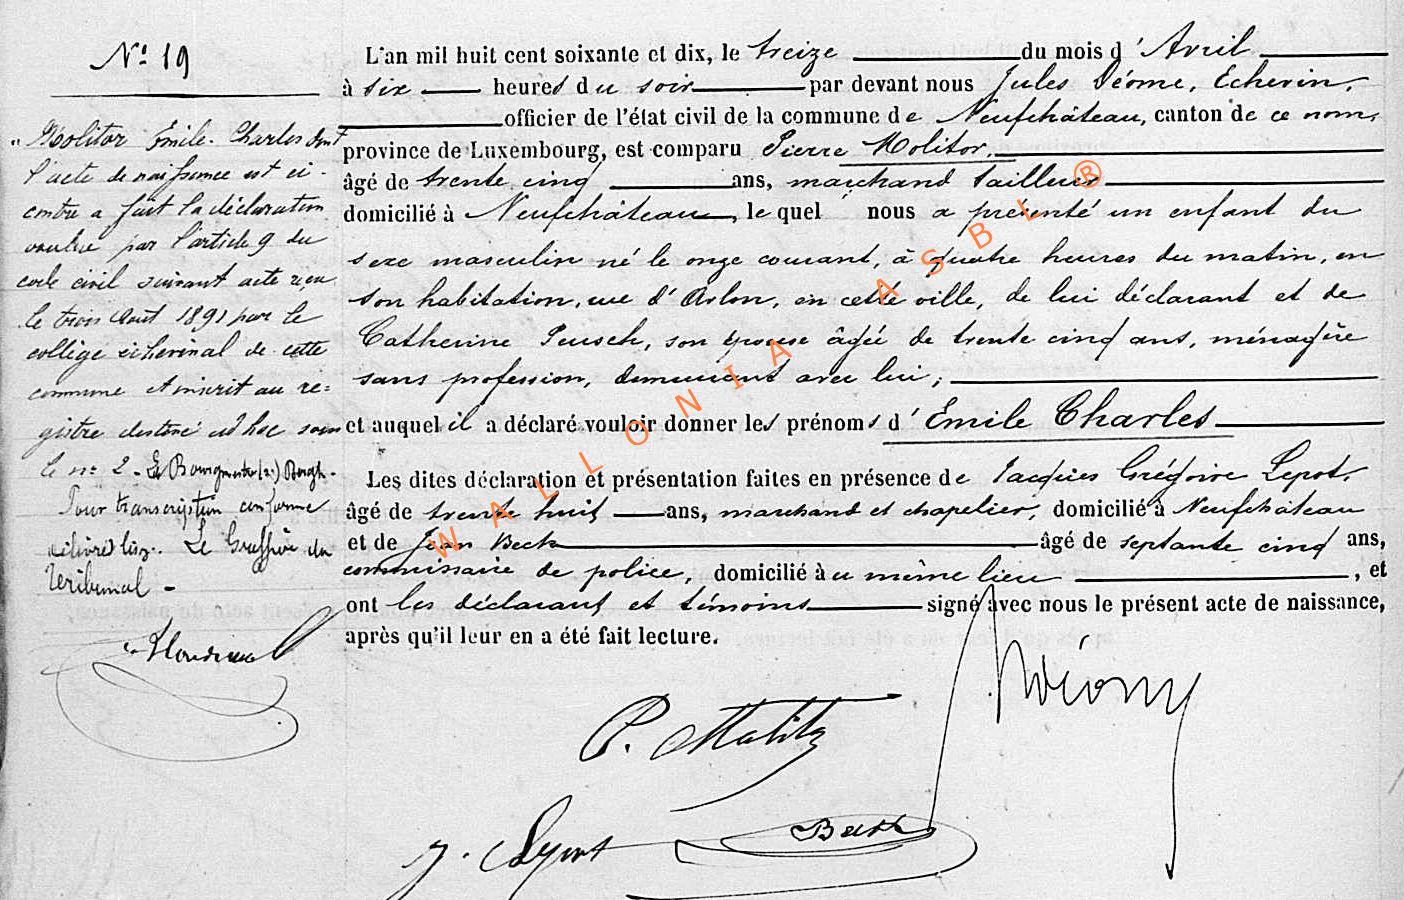 Nº 19
"Molitor Emile-Charles dont
l'acte de naissance est ci-
contre a fait la déclaration
voulue par l'article 9 du
code civil suivant acte reçu
le trois août 1891 par le
collège échevinal de cette
commune et inscrit au re=
gistre destiné ad hoc sous
le nº 2. Le Bourgmestre (s)
Pour transcription conforme
délivré Le Greffier du
Tribunal -
L'an mil huit cent soixante et dix, le treize du mois d'Avril
à six heures du soir par devant nous Jules Déome, Echevin,
officier de l'état civil de la commune de Neufchâteau, canton de ce nom,
province de Luxembourg, est comparu Pierre Molitor,
âgé de trente cinq ans, marchand tailleur
domicilié à Neufchâteau, le quel nous a présenté un enfant du
sexe masculin né le onze courant, à quatre heures du matin, en
son habitation, rue d'Arlon, en cette ville, de lui déclarant et de
Catherine Peusch, son épouse âgée de trente cinq ans, ménagère
sans profession, demeurant avec lui;
et auquel il a déclaré vouloir donner les prénoms d'Emile Charles
Les dites déclaration et présentation faites en présence de Jacques Grégoire Lepot,
âgé de trente huit ans, marchand et chapelier, domicilié à Neufchâteau
et de Jean Beck âgé de septante cinq ans,
commissaire de police, domicilié au même lieu, et
ont les déclarant et témoins signé avec nous le présent acte de naissance,
après qu'il leur en a été fait lecture.
P. Molitor
J. Lepot
Beck
WALLONIA ASBL ®